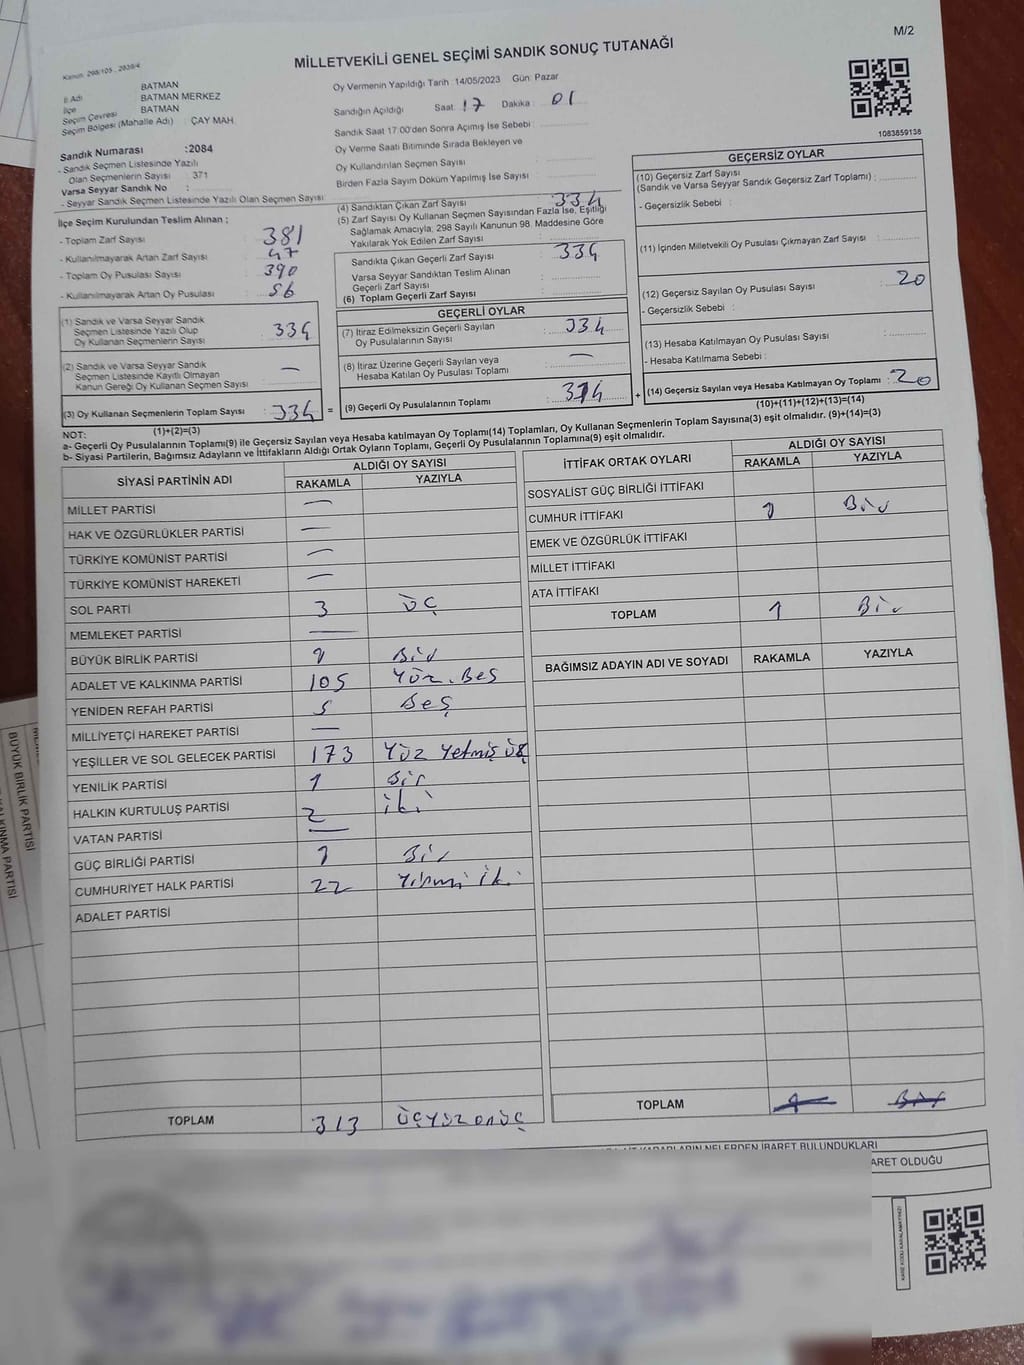 M/2
MİLLETVEKİLİ GENEL SEÇİMİ SANDIK SONUÇ TUTANAĞI
Kanun: 298/105 , 2839/4
İl Adı BATMAN
İlçe BATMAN MERKEZ
Seçim Çevresi BATMAN
Seçim Bölgesi (Mahalle Adı) : ÇAY MAH.
Sandık Numarası :2084
- Sandık Seçmen Listesinde Yazılı
Olan Seçmenlerin Sayısı : 371
Varsa Seyyar Sandık No :
- Seyyar Sandık Seçmen Listesinde Yazılı Olan Seçmen Sayısı :
Oy Vermenin Yapıldığı Tarih :14/05/2023 Gün: Pazar
Sandığın Açıldığı Saat : 17 Dakika : 01
Sandık Saat 17:00'den Sonra Açımış İse Sebebi :
Oy Verme Saati Bitiminde Sırada Bekleyen ve
Oy Kullandırılan Seçmen Sayısı :
Birden Fazla Sayım Döküm Yapılmış İse Sayısı :
1083859138
İlçe Seçim Kurulundan Teslim Alınan ;
- Toplam Zarf Sayısı : 381
- Kullanılmayarak Artan Zarf Sayısı : 47
- Toplam Oy Pusulası Sayısı : 390
- Kullanılmayarak Artan Oy Pusulası : 56
(1) Sandık ve Varsa Seyyar Sandık
Seçmen Listesinde Yazılı Olup
Oy Kullanan Seçmenlerin Sayısı : 334
(2) Sandık ve Varsa Seyyar Sandık
Seçmen Listesinde Kayıtlı Olmayan
Kanun Gereği Oy Kullanan Seçmen Sayısı : —
(3) Oy Kullanan Seçmenlerin Toplam Sayısı : 334 =
(1)+(2)=(3)
(4) Sandıktan Çıkan Zarf Sayısı : 334
(5) Zarf Sayısı Oy Kullanan Seçmen Sayısından Fazla İse, Eşitliği
Sağlamak Amacıyla; 298 Sayılı Kanunun 98. Maddesine Göre
Yakılarak Yok Edilen Zarf Sayısı :
Sandıkta Çıkan Geçerli Zarf Sayısı : 334
Varsa Seyyar Sandıktan Teslim Alınan
Geçerli Zarf Sayısı :
(6) Toplam Geçerli Zarf Sayısı :
GEÇERLİ OYLAR
(7) İtiraz Edilmeksizin Geçerli Sayılan
Oy Pusulalarının Sayısı : 334
(8) İtiraz Üzerine Geçerli Sayılan veya
Hesaba Katılan Oy Pusulası Toplamı : —
(9) Geçerli Oy Pusulalarının Toplamı : 314 +
GEÇERSİZ OYLAR
(10) Geçersiz Zarf Sayısı
(Sandık ve Varsa Seyyar Sandık Geçersiz Zarf Toplamı) :
- Geçersizlik Sebebi :
(11) İçinden Milletvekili Oy Pusulası Çıkmayan Zarf Sayısı :
(12) Geçersiz Sayılan Oy Pusulası Sayısı : 20
- Geçersizlik Sebebi :
(13) Hesaba Katılmayan Oy Pusulası Sayısı :
- Hesaba Katılmama Sebebi :
(14) Geçersiz Sayılan veya Hesaba Katılmayan Oy Toplamı : 20
(10)+(11)+(12)+(13)=(14)
NOT:
a- Geçerli Oy Pusulalarının Toplamı(9) ile Geçersiz Sayılan veya Hesaba katılmayan Oy Toplamı(14) Toplamları, Oy Kullanan Seçmenlerin Toplam Sayısına(3) eşit olmalıdır. (9)+(14)=(3)
b- Siyasi Partilerin, Bağımsız Adayların ve İttifakların Aldığı Ortak Oyların Toplamı, Geçerli Oy Pusulalarının Toplamına(9) eşit olmalıdır.
SİYASİ PARTİNİN ADI ALDIĞI OY SAYISI
RAKAMLA YAZIYLA
MİLLET PARTİSİ —
HAK VE ÖZGÜRLÜKLER PARTİSİ —
TÜRKİYE KOMÜNİST PARTİSİ —
TÜRKİYE KOMÜNİST HAREKETİ —
SOL PARTİ 3 ÜÇ
MEMLEKET PARTİSİ —
BÜYÜK BİRLİK PARTİSİ 1 Bir
ADALET VE KALKINMA PARTİSİ 105 Yüz. Beş
YENİDEN REFAH PARTİSİ 5 Beş
MİLLİYETÇİ HAREKET PARTİSİ —
YEŞİLLER VE SOL GELECEK PARTİSİ 173 Yüz Yetmiş üç
YENİLİK PARTİSİ 1 Bir
HALKIN KURTULUŞ PARTİSİ 2 iki
VATAN PARTİSİ —
GÜÇ BİRLİĞİ PARTİSİ 1 Bir
CUMHURİYET HALK PARTİSİ 22 Yirmi iki
ADALET PARTİSİ
TOPLAM 313 üçyüzonüç
İTTİFAK ORTAK OYLARI ALDIĞI OY SAYISI
RAKAMLA YAZIYLA
SOSYALİST GÜÇ BİRLİĞİ İTTİFAKI
CUMHUR İTTİFAKI 1 Bir
EMEK VE ÖZGÜRLÜK İTTİFAKI
MİLLET İTTİFAKI
ATA İTTİFAKI
TOPLAM 1 Bir
BAĞIMSIZ ADAYIN ADI VE SOYADI RAKAMLA YAZIYLA
TOPLAM 1 Bir
NELERDEN İBARET BULUNDUKLARI
ARET OLDUĞU
BÜYÜK BİRLİK PARTİSİ
KALKINMA PARTİSİ